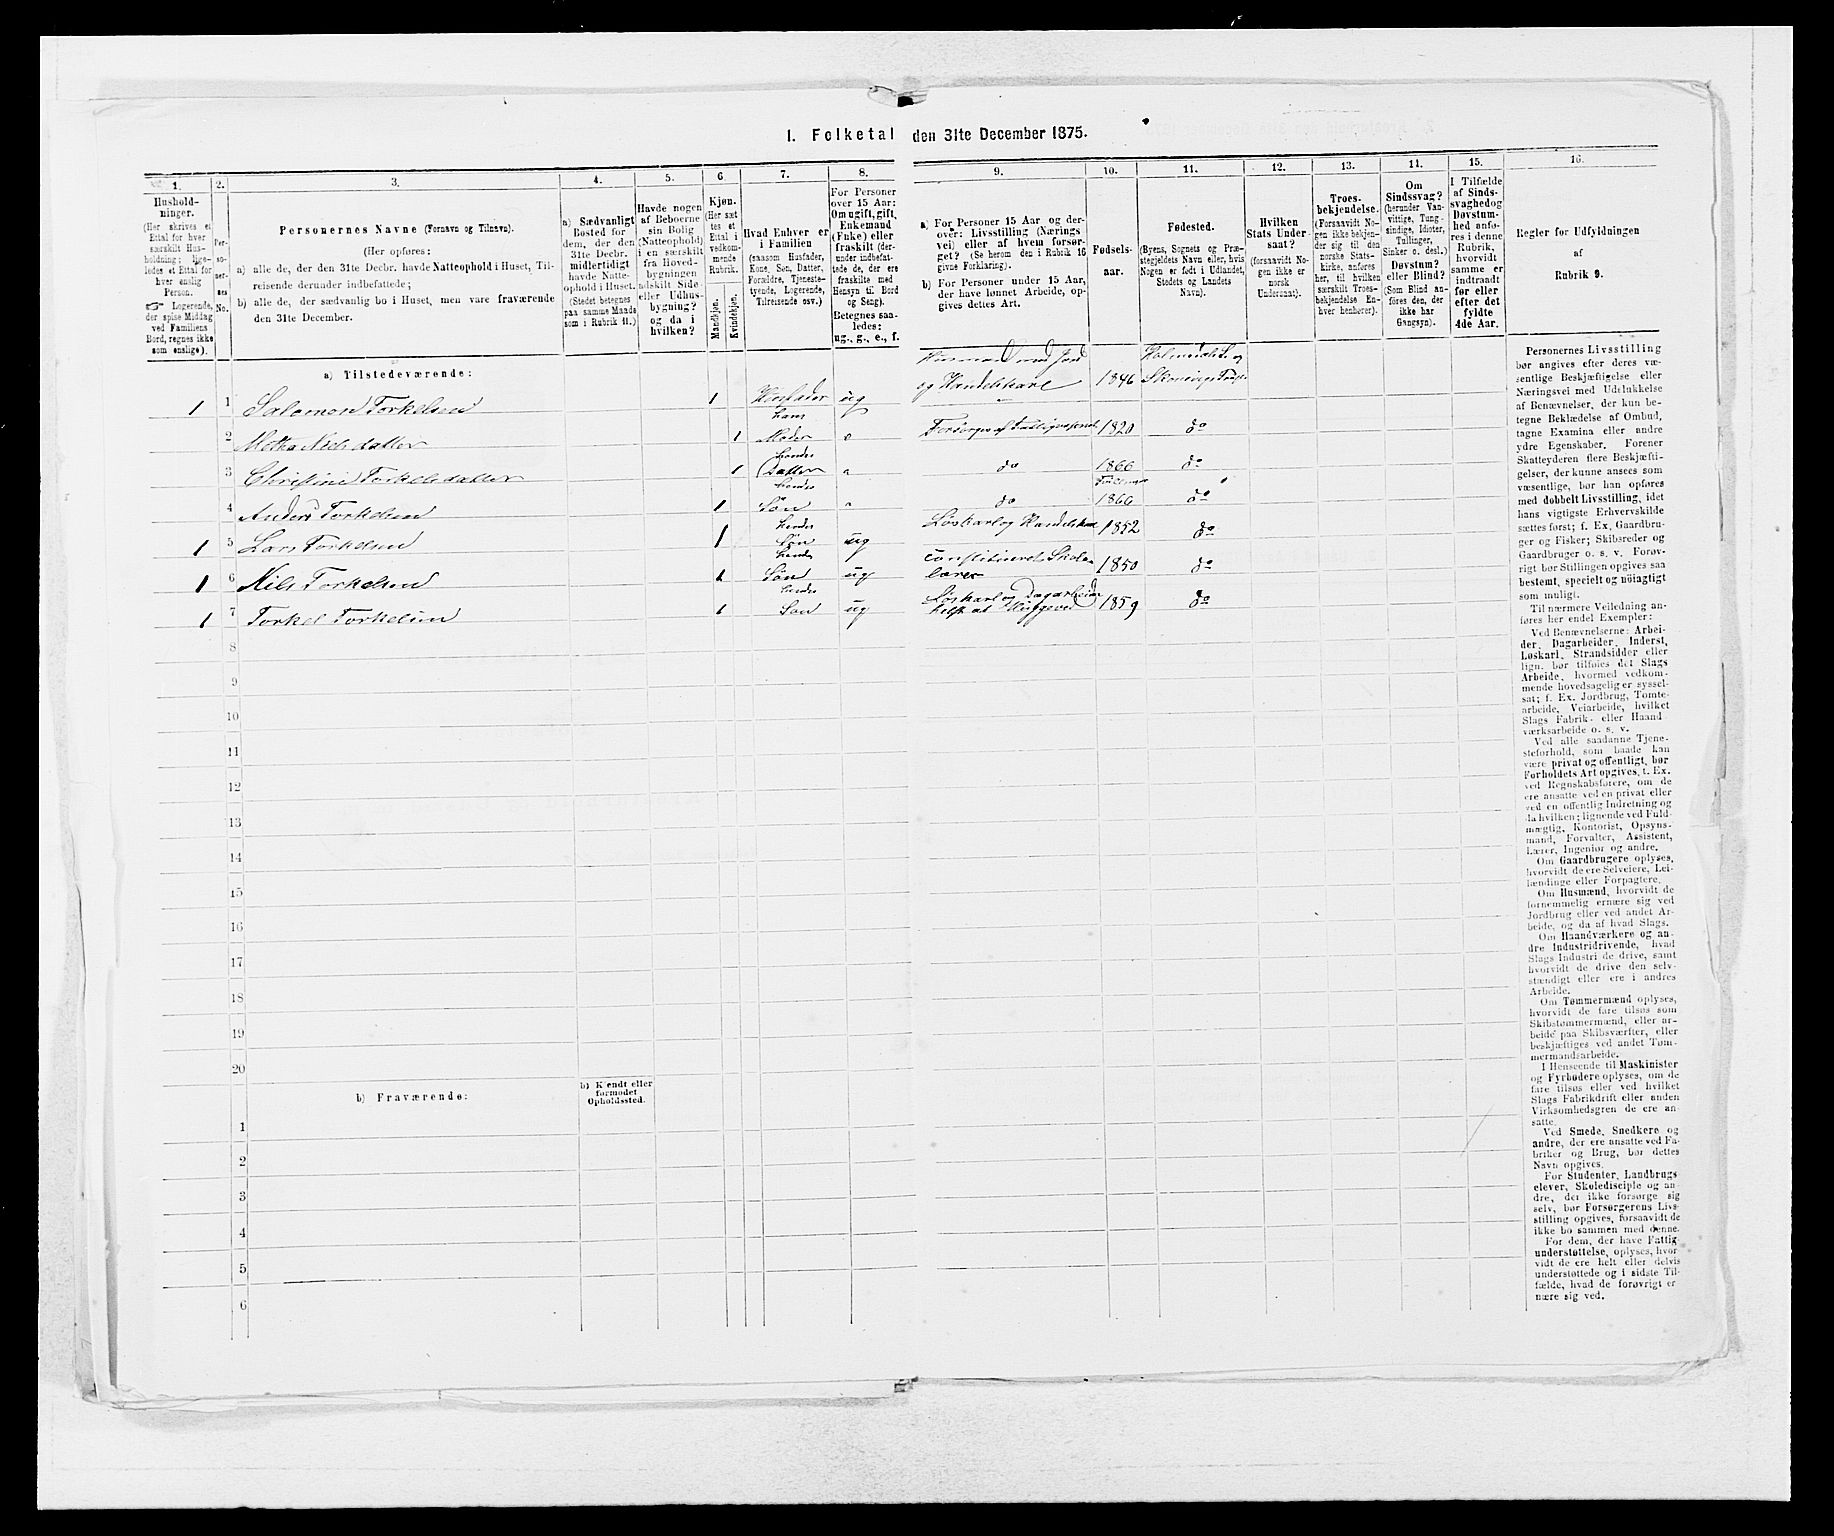 I. Folketal den 31te December 1875.
1. 2. 3. 4. 5. 6. 7. 8. 9. 10. 11. 12. 13. 14. 15. 16.
Hushold-
ninger.
(Her skrives et
Ettal for hver
særskilt Hus-
holdning; lige-
ledes et Ettal for
hver enslig
Person.
☞ Logerende,
der spise Middag
ved Familiens
Bord, regnes ikke
som enslige).
Per-
so-
ner-
nes
No.
Personernes Navne (Fornavn og Tilnavn).
(Her opføres:
a) alle de, der den 31te Decbr. havde Natteophold i Huset, Til-
reisende derunder indbefattede;
b) alle de, der sædvanlig bo i Huset, men vare fraværende
den 31te December.
a) Sædvanligt
Bosted for
dem, der den
31te Decbr.
midlertidigt
havde Natte-
ophold i Huset.
(Stedet betegnes
paa samme Maade
som i Rubrik 11.)
Havde nogen
af Beboerne
sin Bolig
(Natteophold)
i en særskilt
fra Hoved-
bygningen
adskilt Side-
eller Udhus-
bygning?
og da i
hvilken?
Kjøn.
(Her sæt-
tes et
Ettal i
vedkom-
mende
Rubrik.
Mandkjøn.
Kvindekjøn.
Hvad Enhver er
i Familien
(saasom Husfader,
Kone, Søn, Datter,
Forældre, Tjeneste-
tyende, Logerende,
Tilreisende osv.)
For Personer
over 15 Aar:
Om ugift, gift,
Enkemand
(Enke) eller
fraskilt (der-
under indbefat-
tede de, der ere
fraskilte med
Hensyn til Bord
og Seng).
Betegnes saa-
ledes:
ug., g., e., f.
a) For Personer 15 Aar og der-
over: Livsstilling (Nærings-
vei) eller af hvem forsør-
get? (Se herom den i Rubrik 16
givne Forklaring).
b) For Personer under 15 Aar,
der have lønnet Arbeide, op-
gives dettes Art.
Fødsels-
aar.
Fødested.
(Byens, Sognets og Præ-
stegjeldets Navn eller, hvis
Nogen er født i Udlandet,
Stedets og Landets
Navn).
Hvilken
Stats Under-
saat?
(forsaavidt No-
gen ikke er
norsk
Undersaat).
Troes-
bekjendelse.
(Forsaavidt No-
gen ikke bekjen-
der sig til den
norske Stats-
kirke, anføres
her, til hvilken
særskilt Troes-
bekjendelse En-
hver henhører).
Om
Sindssvag?
(herunder Van-
vittige, Tung-
sindige, Idioter,
Tullinger,
Sinker o. desl.)
Døvstum?
eller Blind?
(Som Blind an-
føres den, der
ikke har
Gangsyn).
I Tilfælde
af Sinds-
svaghed og
Døvstum-
hed anfø-
res i denne
Rubrik,
hvorvidt
samme er
indtraadt
før eller
efter det
fyldte
4de Aar.
Regler for Udfyldningen
af
Rubrik 9.
a) Tilstedeværende:
Husmand med Jord
og Handelskarl
1 1 Salomon Torkelsen 1 Husfader ug 1846
2 Metha Nielsdatter 1 hans Moder e Forsørges af Fattigvæsenet 1820 do
3 Christine Torkelsdatter 1 hendes Datter " do 1866 do
4 Anders Torkelsen 1 hendes Søn " do 1866 do
1 5 Lars Torkelsen 1 hendes Søn ug Løskarl og Handelskarl 1852 do
1 6 Nils Torkelsen 1 hendes Søn ug constitueret Skole-
lærer 1850 do
1 7 Torkel Torkelsen 1 hendes Søn ug Løskarl og Dagarbeider 1859 do
8
9
10
11
12
13
14
15
16
17
18
19
20
b) Fraværende:
b) Kjendt eller
formodet
Opholdssted.
1
2
3
4
5
6
Personernes Livsstilling
bør angives efter deres væ-
sentlige Beskjæftigelse eller
Næringsvei med Udelukkelse
af Benævnelser, der kun be-
tegne Beklædelse af Ombud,
tagne Examina eller andre
ydre Egenskaber. Forener
Skatteyderen flere Beskjæfti-
gelser, der kunne ansees som
væsentlige, bør han opføres
med dobbelt Livsstilling, idet
hans vigtigste Erhvervskilde
sættes først; f. Ex. Gaardbru-
ger og Fisker; Skibsreder og
Gaardbruger o. s. v. Forøv-
rigt bør Stillingen opgives saa
bestemt, specielt og nøiagtigt
som muligt.
Til nærmere Veiledning an-
føres her endel Exempler:
Ved Benævnelserne: Arbei-
der, Dagarbeider, Inderst,
Løskarl, Strandsidder eller
lign. bør tilføies det Slags
Arbeide, hvormed vedkom-
mende hovedsagelig er syssel-
sat; f. Ex. Jordbrug, Tomte-
arbeide, Veiarbeide, hvilket
Slags Fabrik- eller Haand-
værksarbeide o. s. v.
Ved alle saadanne Tjene-
steforhold, som baade kan
være privat og offentligt, bør
Forholdets Art opgives, t. Ex.
ved Regnskabsførere, om de
ere ansatte ved en privat eller
ved en offentlig Indretning og
da hvilken; lignende ved Fuld-
mægtig, Kontorist, Opsyns-
mand, Forvalter, Assistent,
Lærer, Ingeniør og andre.
Om Gaardbrugere oplyses,
hvorvidt de ere Selveiere, Lei-
lændinge eller Forpagtere.
Om Husmænd, hvorvidt de
fornemmelig ernære sig ved
Jordbrug eller ved andet Ar-
beide, og da af hvad Slags.
Om Haandværkere og an-
dre Industridrivende, hvad
Slags Industri de drive, samt
hvorvidt de drive den selv-
stændigt eller ere i andres
Arbeide.
Om Tømmermænd oplyses,
hvorvidt de fare tilsøs som
Skibstømmermænd, eller ar-
beide paa Skibsværfter, eller
beskjæftiges ved andet Tøm-
mermandsarbeide.
I Henseende til Maskinister
og Fyrbødere oplyses, om de
fare tilsøs eller ved hvilket
Slags Fabrikdrift eller anden
Virksomhedsgren de ere an-
satte.
Ved Smede, Snedkere og
andre, der ere ansatte ved Fa-
briker og Brug, bør dettes
Navn opgives.
For Studenter, Landbrugs-
elever, Skoledisciple og an-
dre, der ikke forsørge sig
selv, bør Forsørgerens Livs-
stilling opgives, forsaavidt de
ikke bo sammen med denne.
For dem, der have Fattig-
understøttelse, oplyses, hvor-
vidt de ere helt eller delvis
understøttede og i sidste Til-
fælde, hvad de forøvrigt er-
nære sig ved.